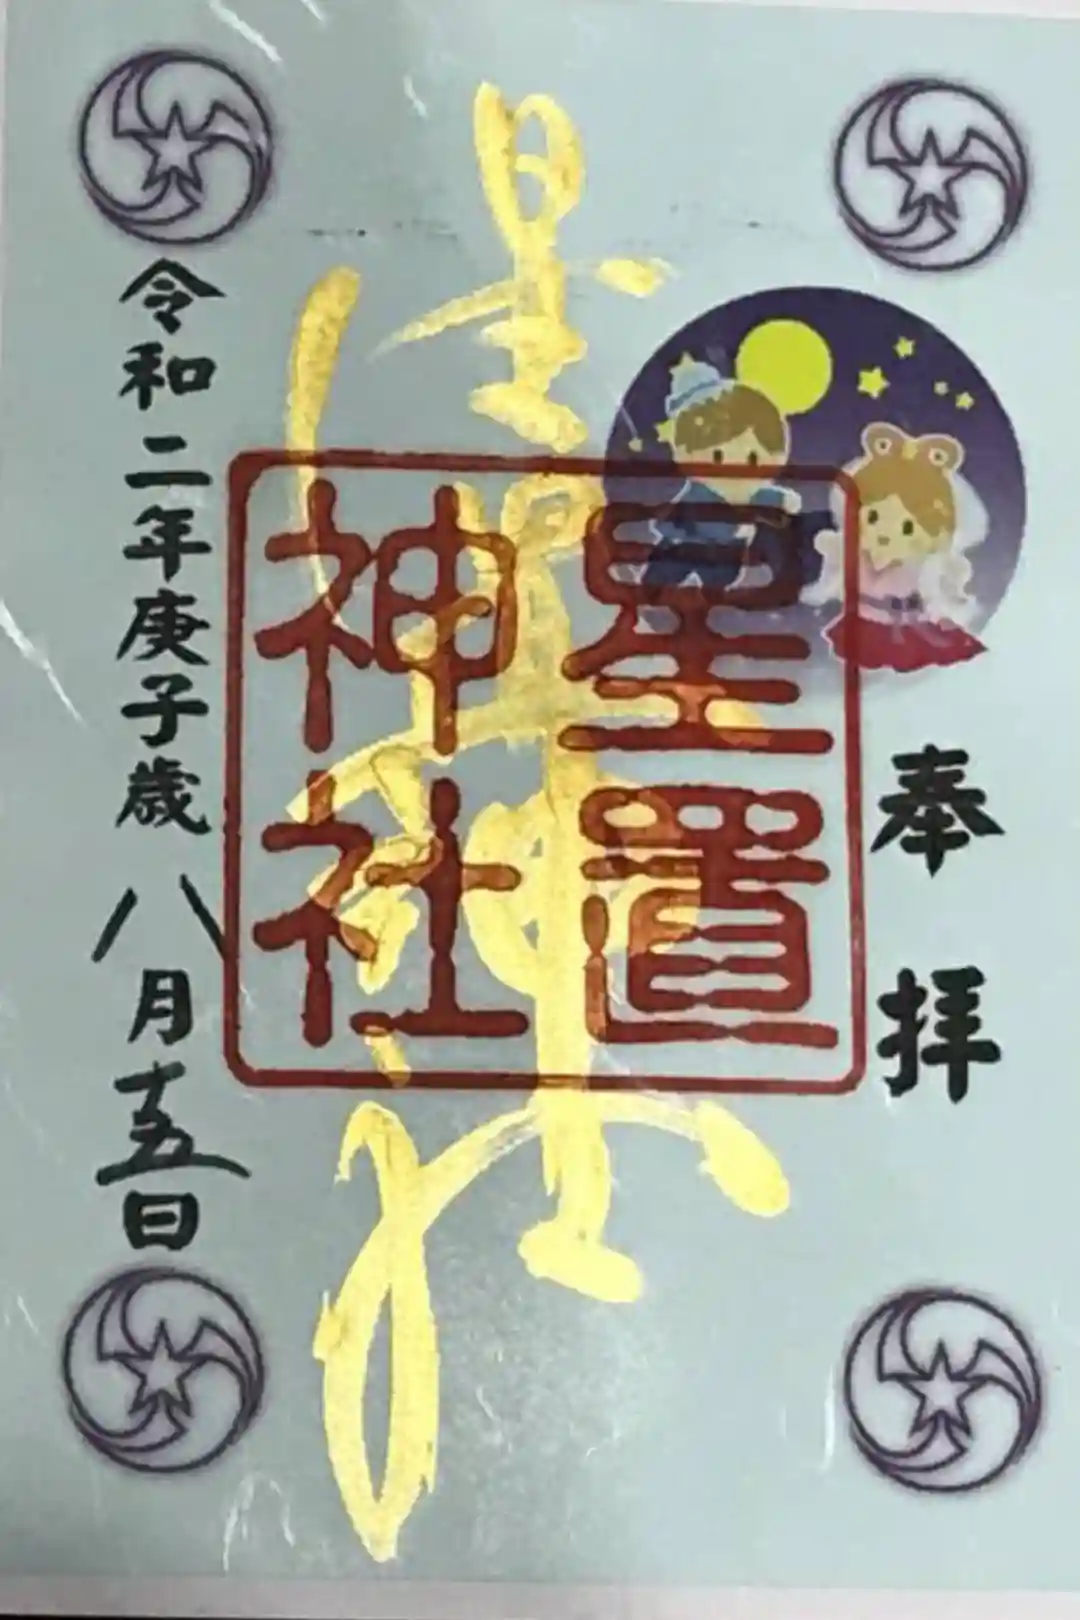 奉拝
星置神社
星置神社
令和二年庚子歳八月十五日